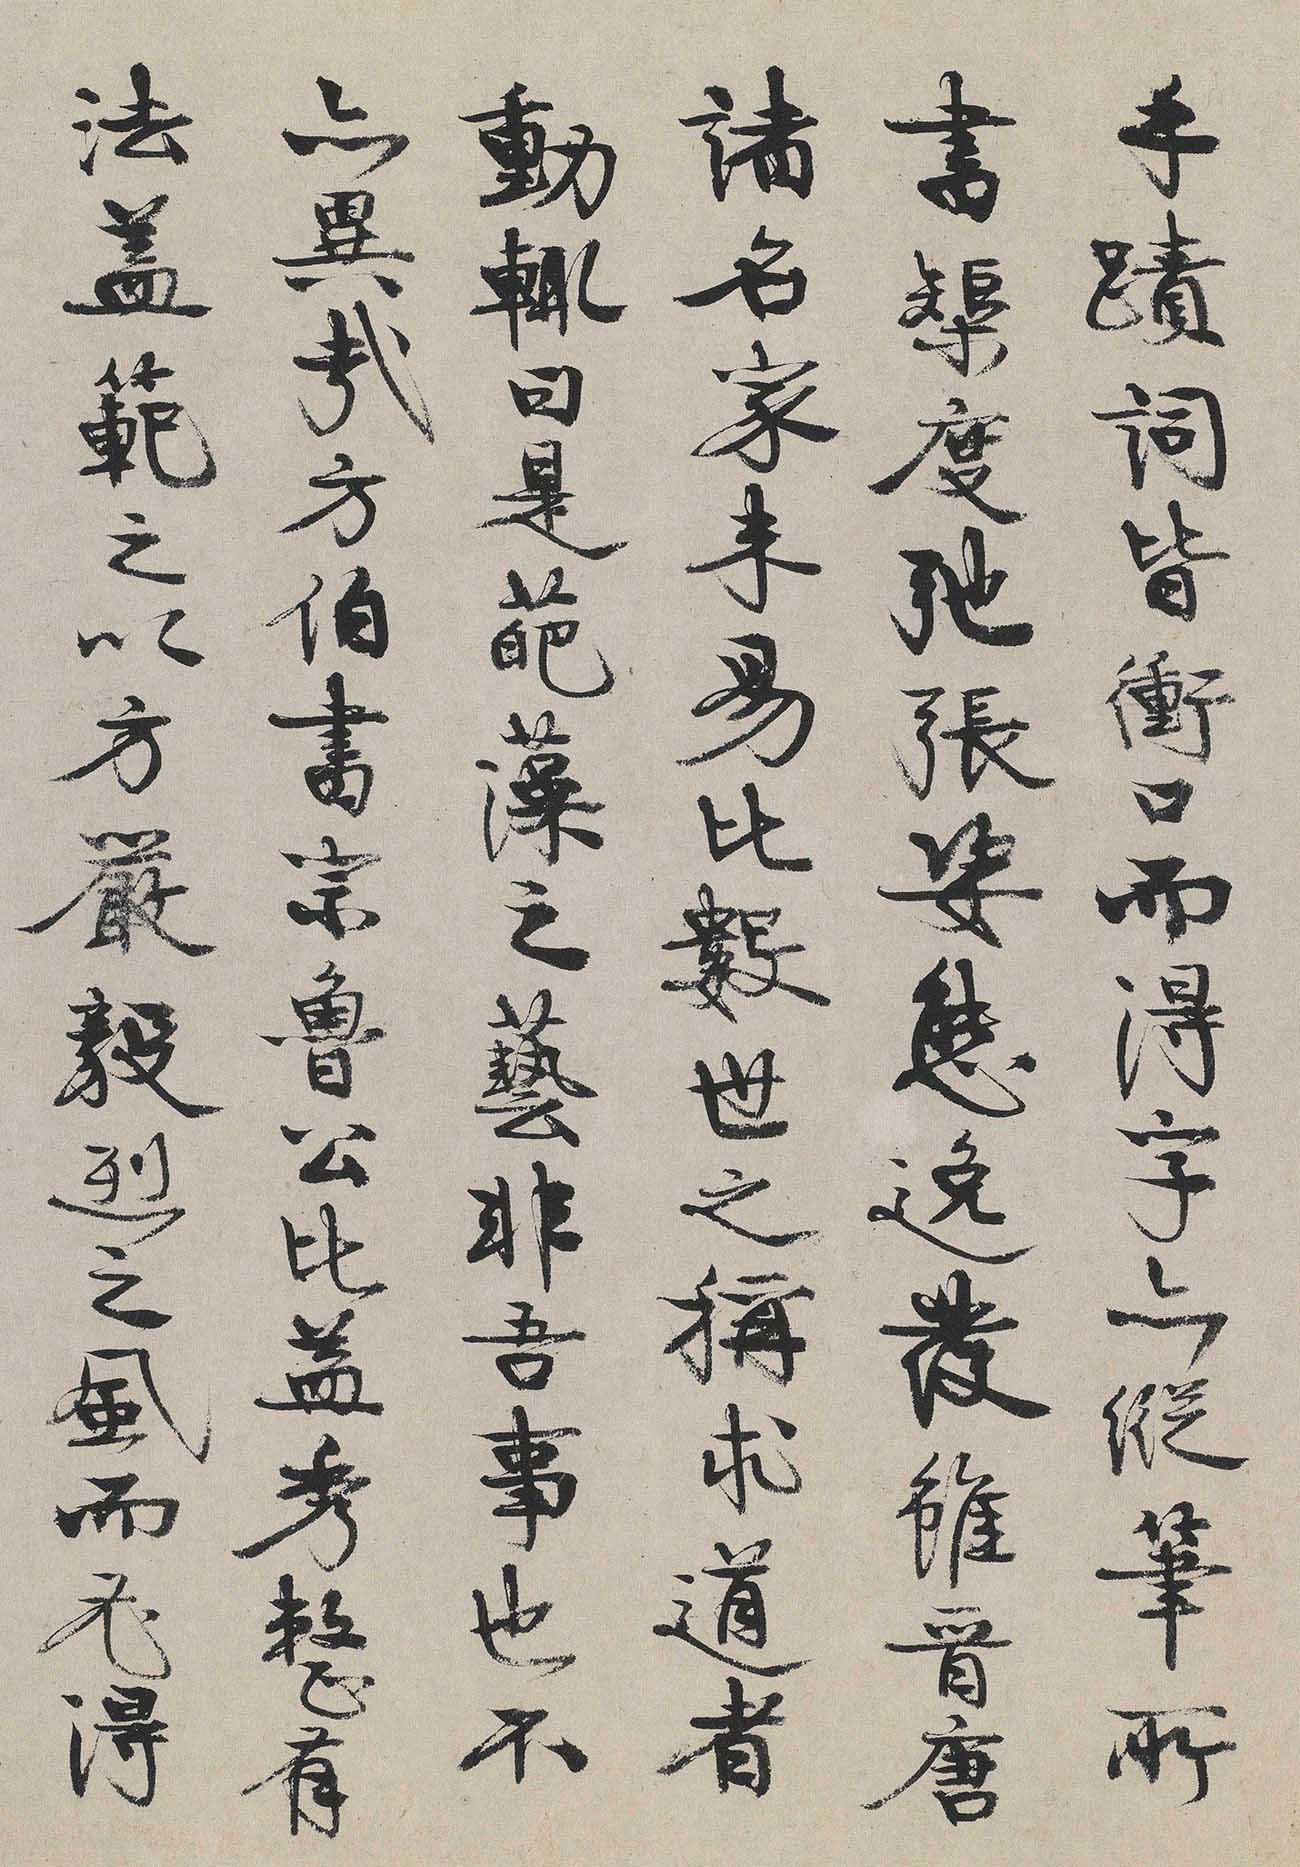 手蹟詞皆衝口而得字亦縱筆所
書榘度弛張姿態逸發雖晉唐
諸名家未易比數世之稱求道者
動輒曰是葩藻之藝非吾事也不
亦異哉方伯書宗魯公比益秀整有
法蓋範之以方嚴毅烈之風而尤得